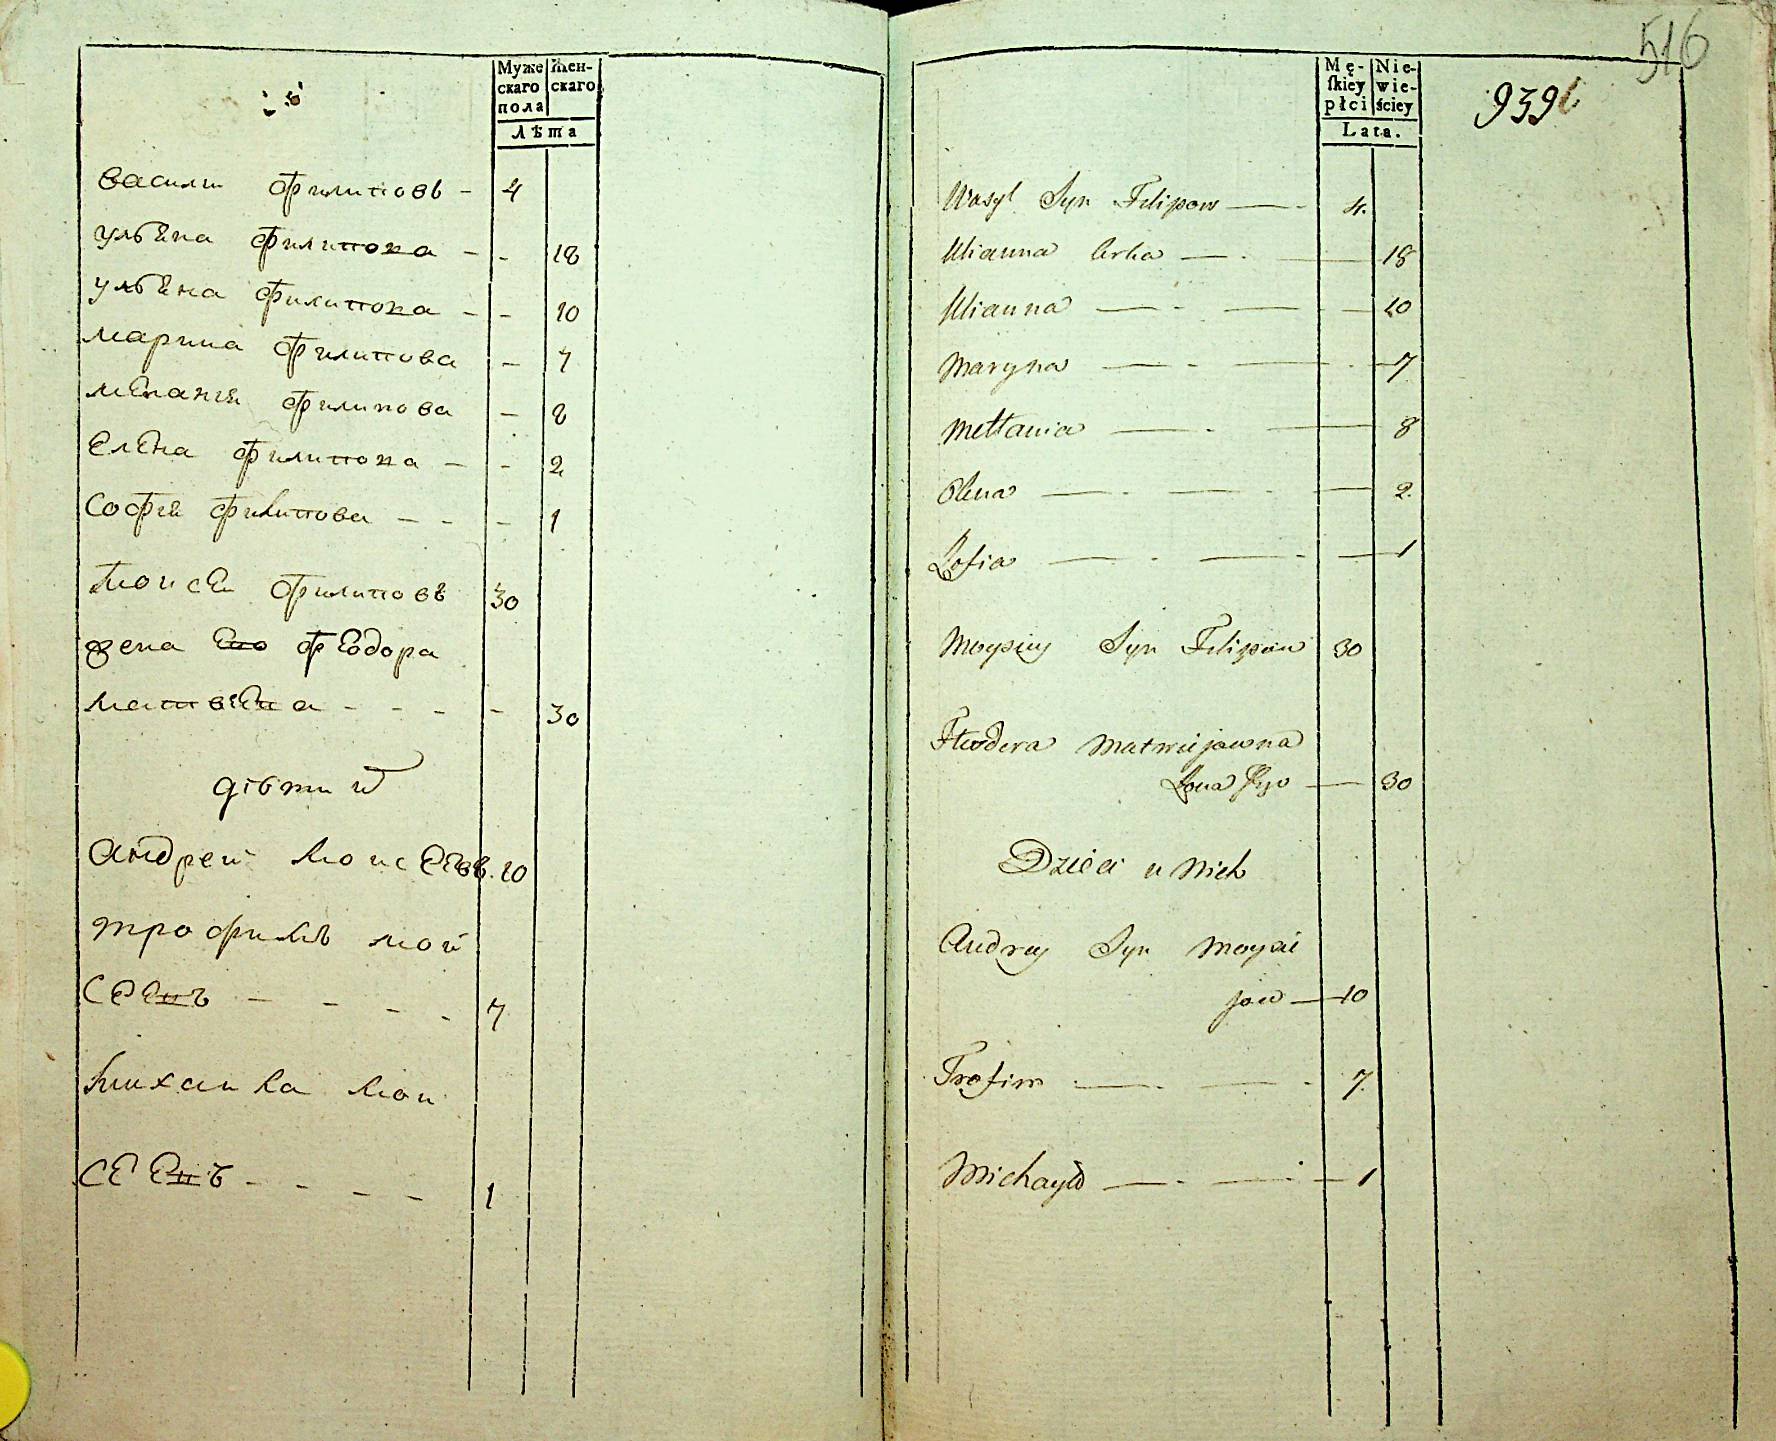 Муже
скаго
пола
Жен-
скаго
Лѣта
василь филиповъ - 4
ульяна филипова - - 18
ульяна филипова - - 10
марина филипова - 7
меланія филипова - 8
елена филипова - - 2
софія филипова - - - 1
моисеи филиповъ 30
жена его феодора
матвіева - - - - 30
дѣти
андреи моисеевъ 10
трофимъ мои
сеевъ - - - - 7
михаила мои
сеевъ - - - - 1
516
939
Mę-
ſkiey
płci
Nie-
wie-
ściey
Lata.
Wasyl Syn Filipow — 4.
Ulianna Corka — 18
Ulianna — 10
Maryna — 7
Mełłania — 8
Olena — 2.
Zofia — 1
Moysiey Syn Filipow 30
Fteodora Matwiejowna
Żona Jego — 30
Dzieci u Nich
Andrey Syn Moysie
jow — 10
Trofim — 7.
Michayło — 1